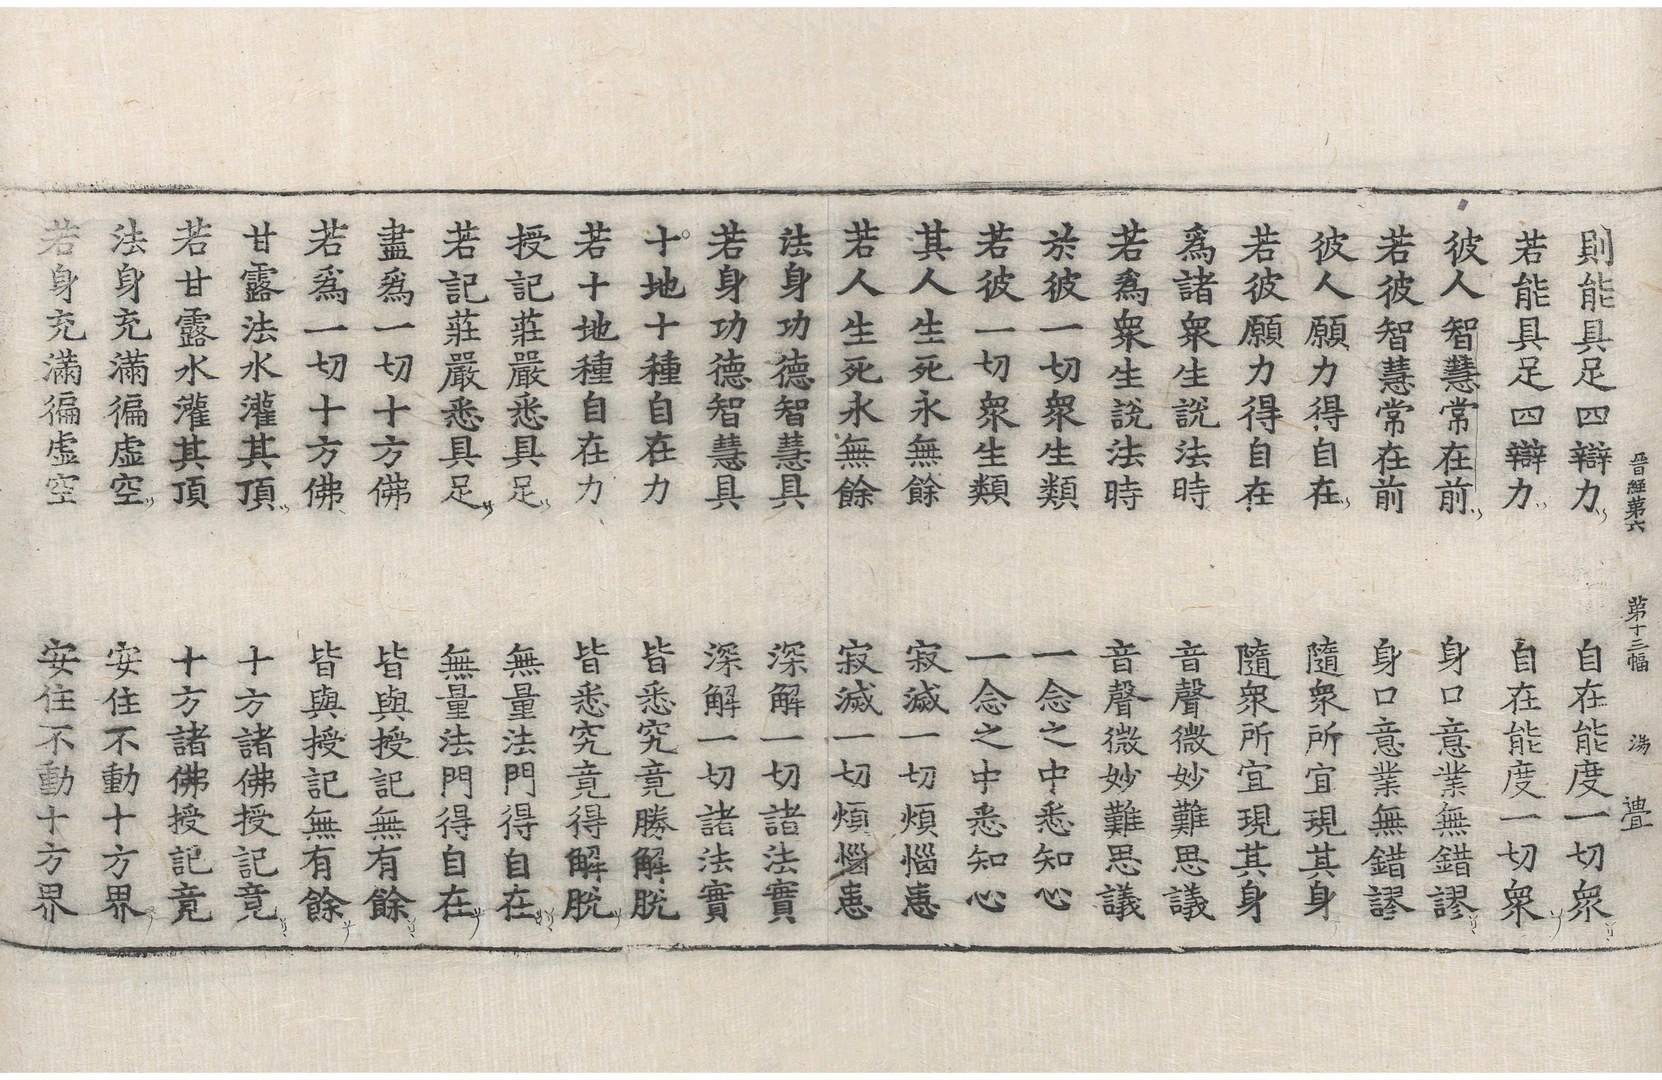 晉經第六 第十三幅 湯
則能具足四辯力 自在能度一切衆
若能具足四辯力 自在能度一切衆
彼人智慧常在前 身口意業無錯謬
若彼智慧常在前 身口意業無錯謬
彼人願力得自在 隨衆所宜現其身
若彼願力得自在 隨衆所宜現其身
爲諸衆生說法時 音聲微妙難思議
若爲衆生說法時 音聲微妙難思議
於彼一切衆生類 一念之中悉知心
若彼一切衆生類 一念之中悉知心
其人生死永無餘 寂滅一切煩惱患
若人生死永無餘 寂滅一切煩惱患
法身功德智慧具 深解一切諸法實
若身功德智慧具 深解一切諸法實
十地十種自在力 皆悉究竟勝解脫
若十地種自在力 皆悉究竟得解脫
授記莊嚴悉具足 無量法門得自在
若記莊嚴悉具足 無量法門得自在
盡爲一切十方佛 皆與授記無有餘
若爲一切十方佛 皆與授記無有餘
甘露法水灌其頂 十方諸佛授記竟
若甘露水灌其頂 十方諸佛授記竟
法身充滿徧虛空 安住不動十方界
若身充滿徧虛空 安住不動十方界